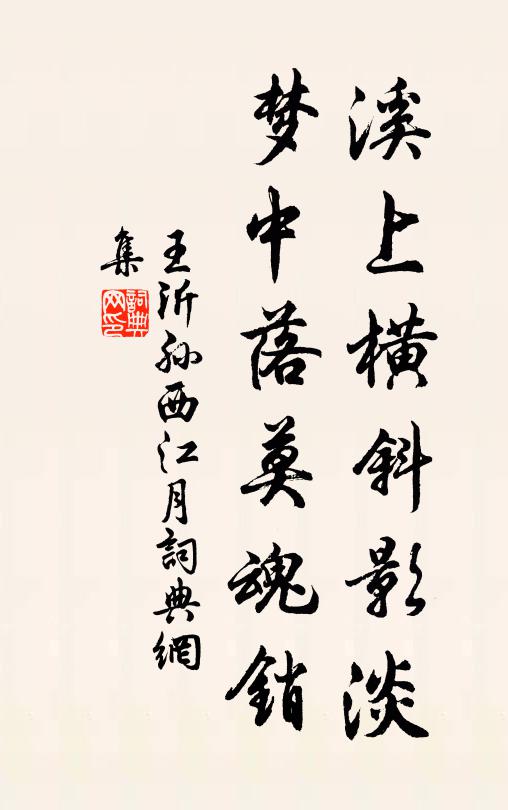 溪上横斜影淡
梦中落莫魂销
王沂孙西江月詞典網
集
詞典
网印